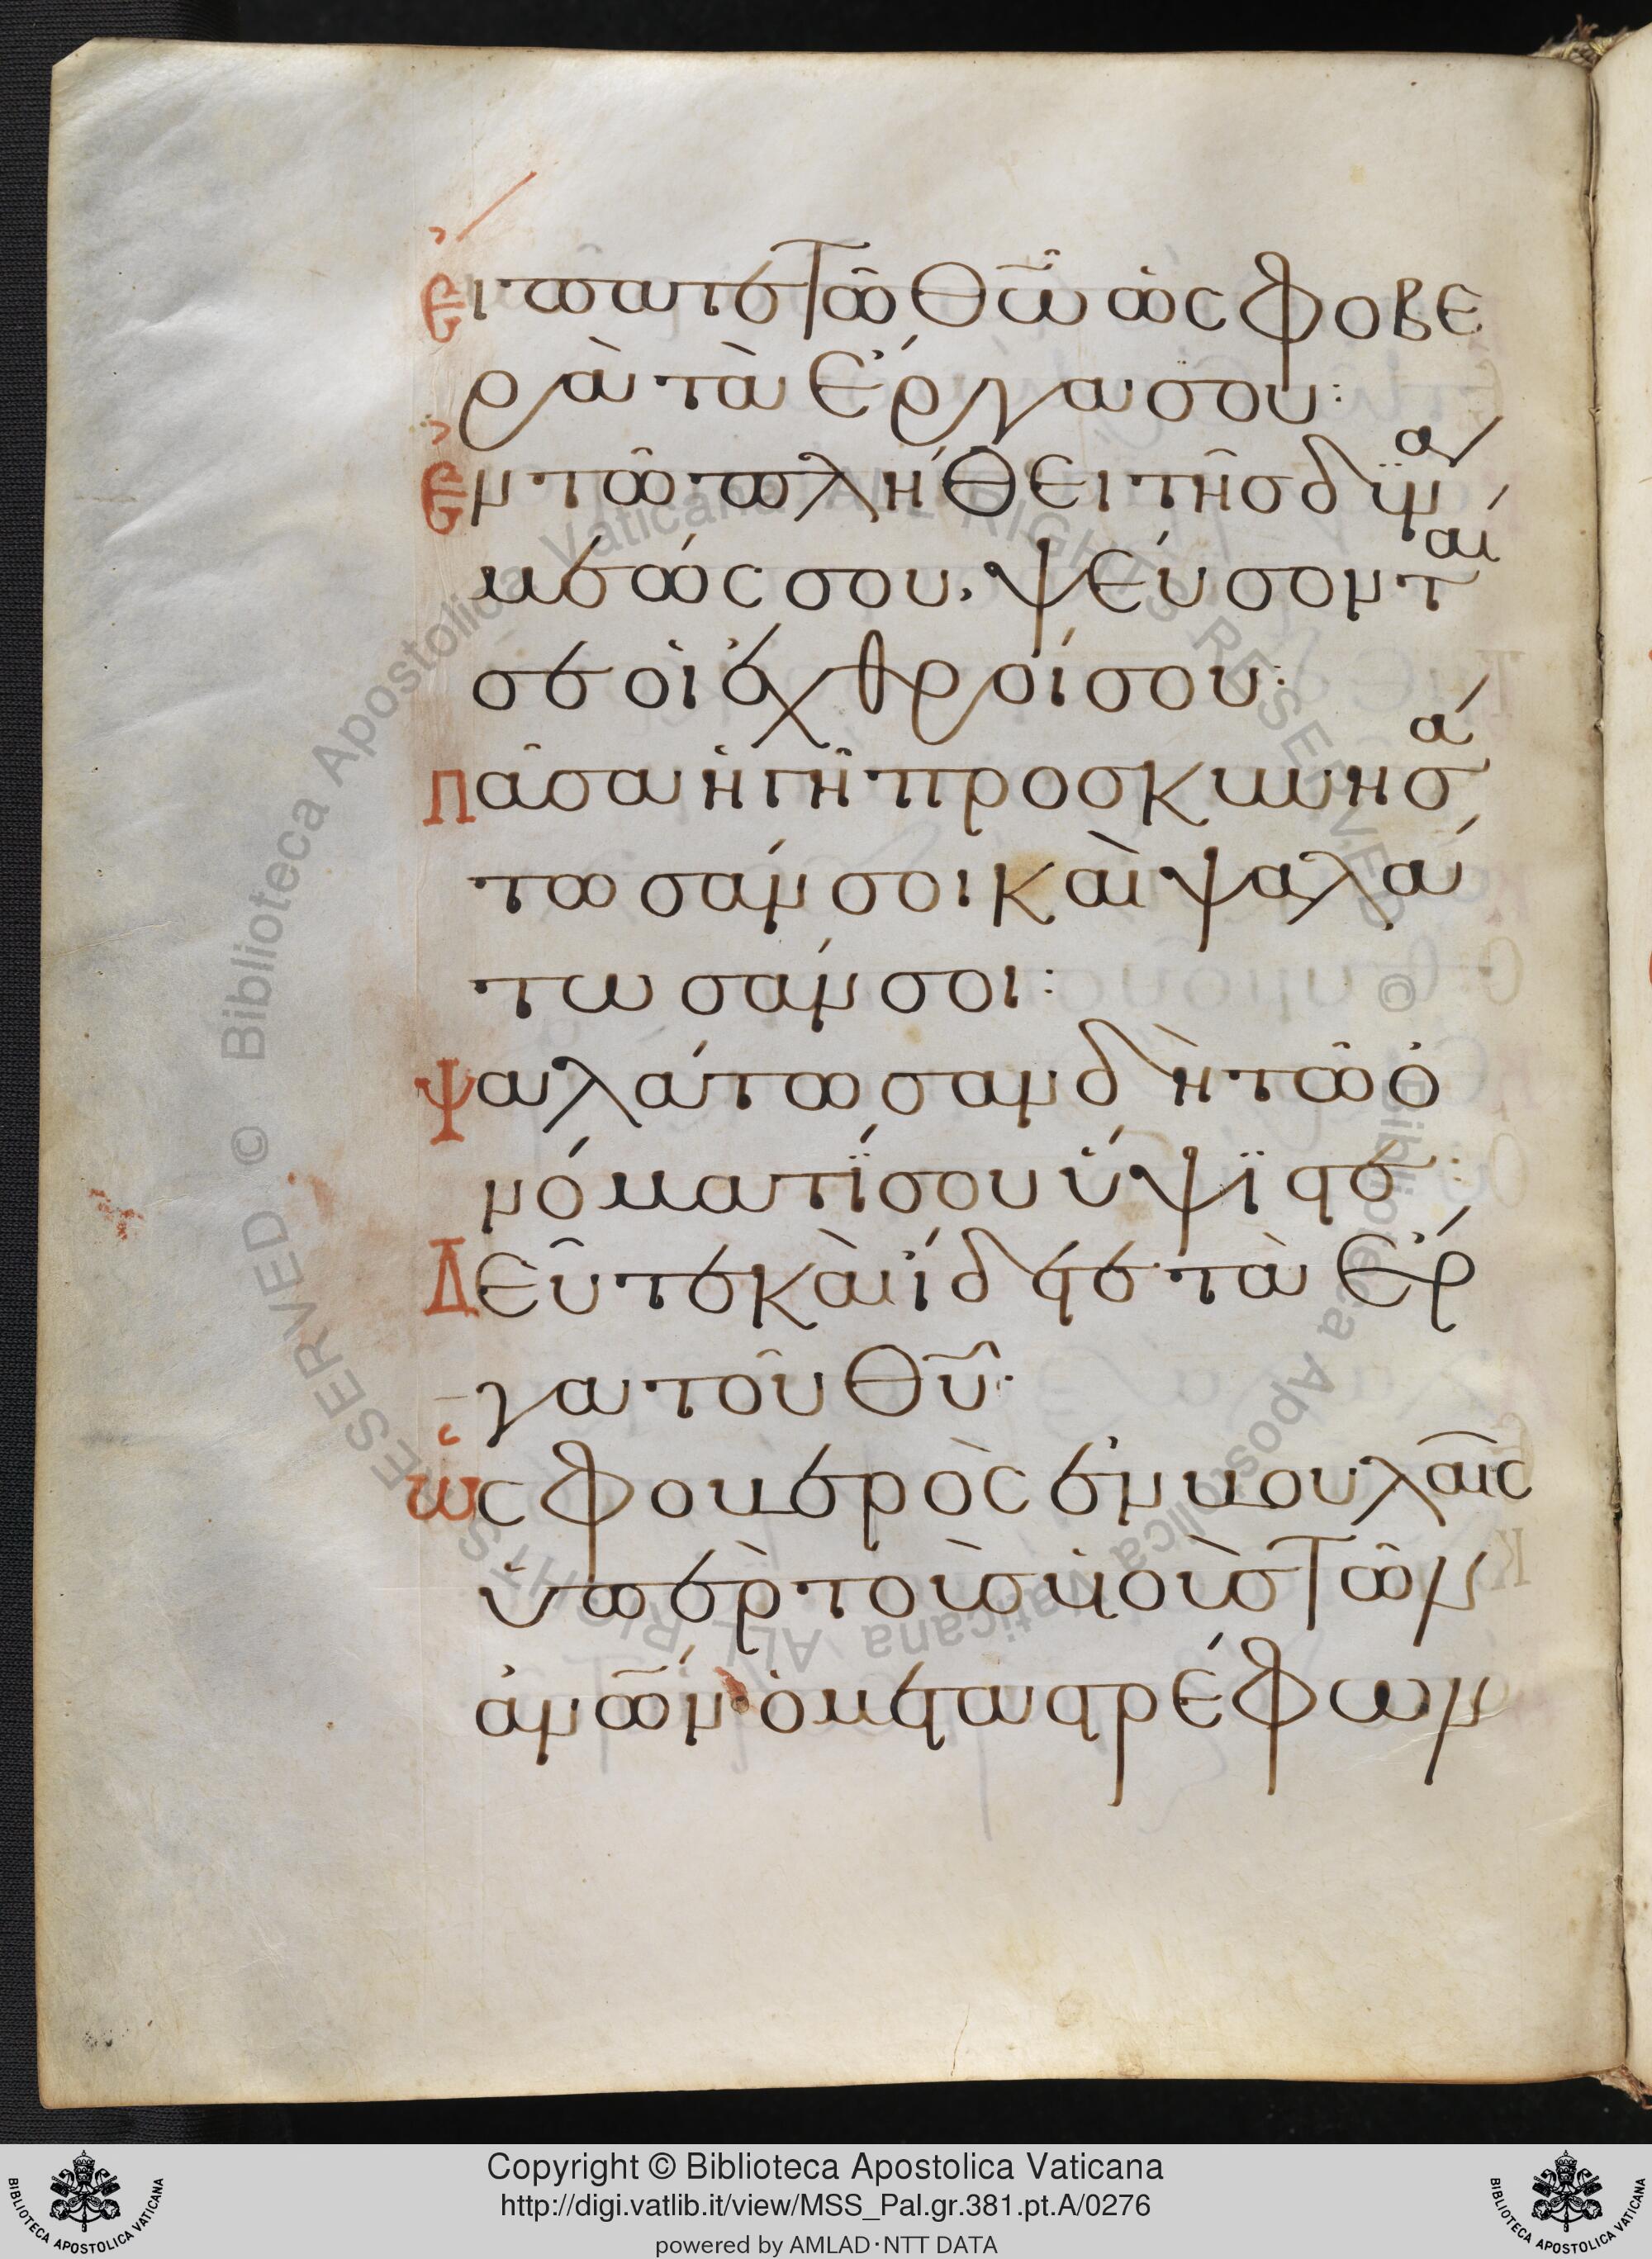 εἴπατε τῶ θῶ ὡς φοβε
ρὰ τὰ ἔργα σου:
ἐν τῶ πλήθει τῆς δϋνά
μεώς σου, ψεύσονταί
σε οἱ ἐχθροί σου:
πᾶσα ἡ γῆ προσκυνησά
τωσάν σοι καὶ ψαλά
τωσάν σοι:
ψαλάτωσαν δὴ τῶ ὀ
νόματΐ σου ὕψϊστε:
Δεῦτε καὶ ἴδετε τὰ ἔρ
γα τοῦ θυ̑·
ὡς φοβερὸς ἐν βουλαῖς
ὑπὲρ τοὺς υἱοὺς τῶν
ἀνῶν· ὁ μεταστρέφων
Copyright © Biblioteca Apostolica Vaticana
http://digi.vatlib.it/view/MSS_Pal.gr.381.pt.A/0276
powered by AMLAD·NTT DATA
BIBLIOTECA APOSTOLICA VATICANA
BIBLIOTECA APOSTOLICA VATICANA
© Biblioteca Apostolica Vaticana ALL RIGHTS RESERVED
© Biblioteca Apostolica Vaticana ALL RIGHTS RESERVED